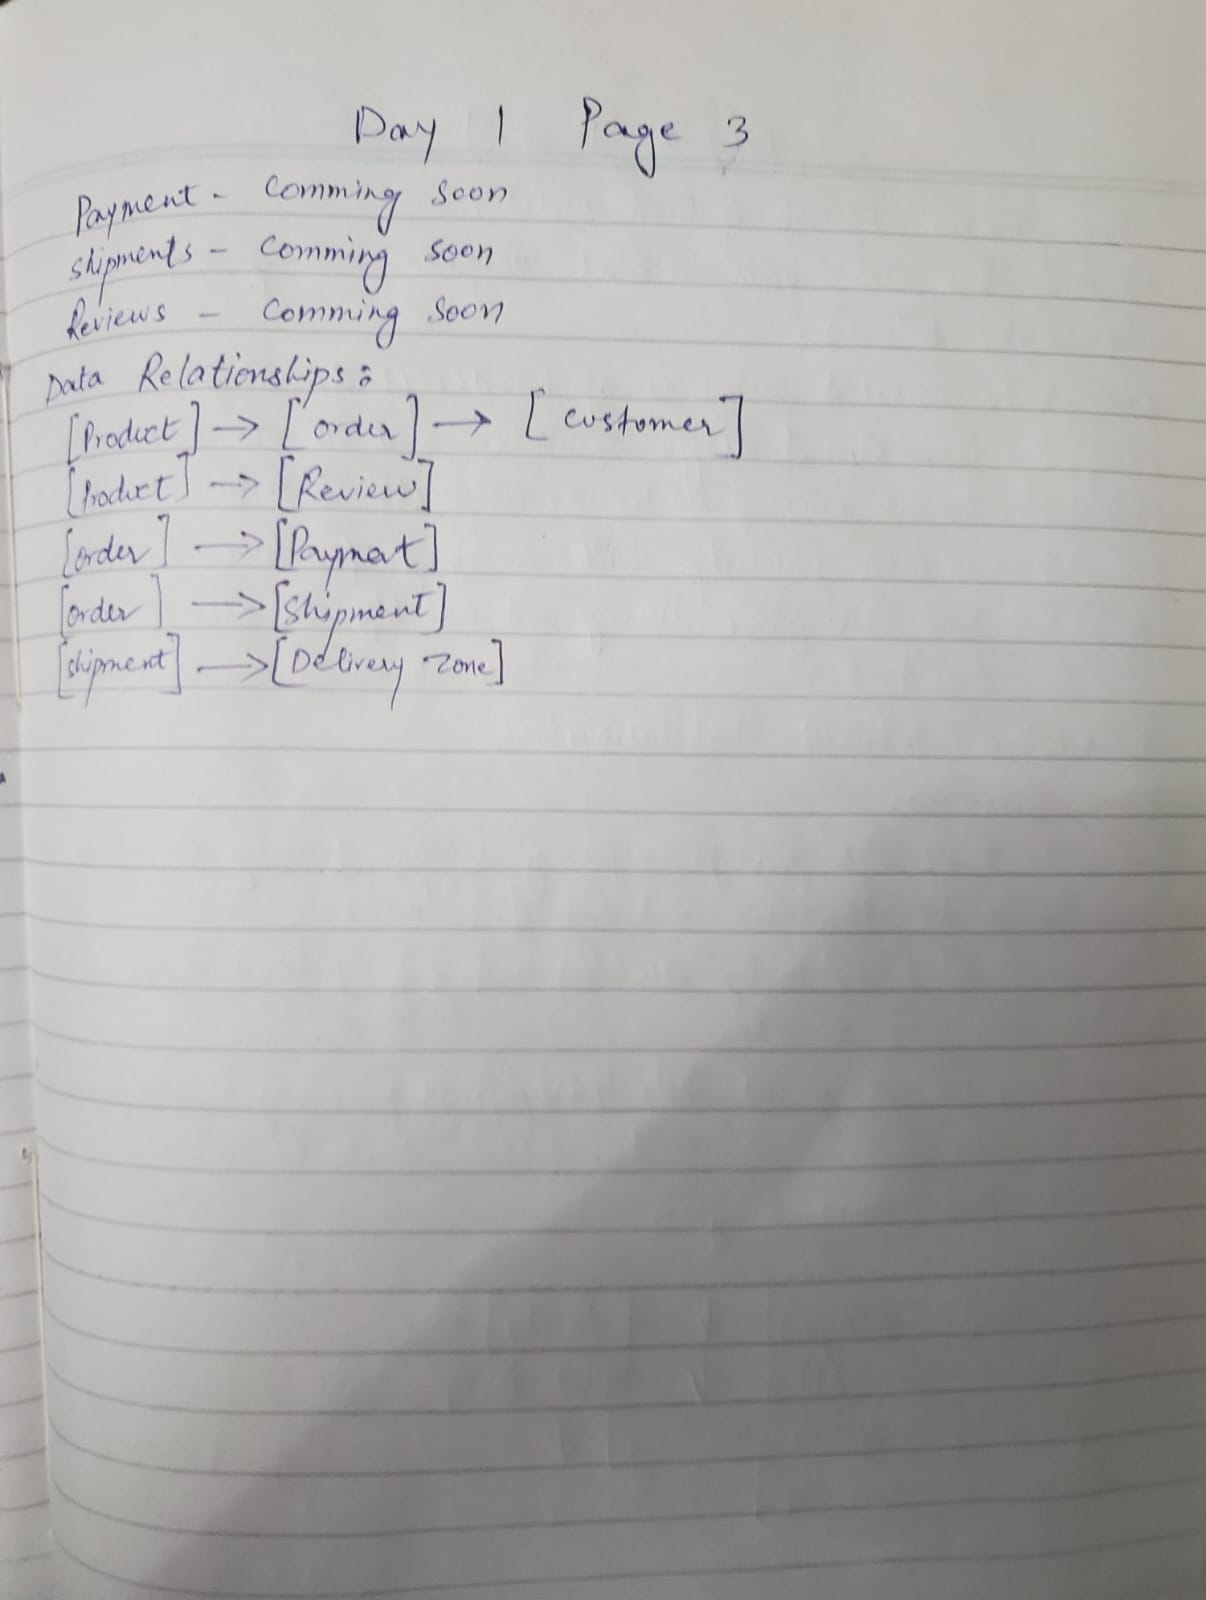 Day 1 Page 3
Payment - Comming Soon
Shipments - Comming Soon
Reviews - Comming Soon
Data Relationships:
[Product] → [order] → [customer]
[Product] → [Review]
[order] → [Payment]
[order] → [Shipment]
[shipment] → [Delivery Zone]